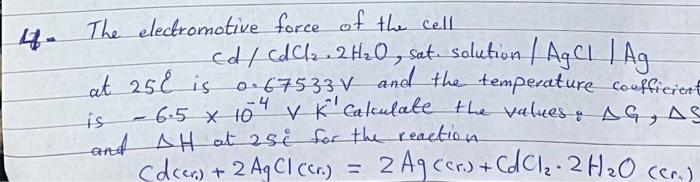 4- The electromotive force of the cell
cd / cdCl₂ . 2H₂O, sat. solution / AgCl | Ag
at 25℃ is 0.67533V and the temperature coefficient
is - 6.5 × 10⁻⁴ V K⁻¹ Calculate the values : ΔG, ΔS
and ΔH at 25℃ for the reaction
Cd(cr.) + 2 AgCl (cr.) = 2 Ag (cr.) + CdCl₂ . 2H₂O (cr.)